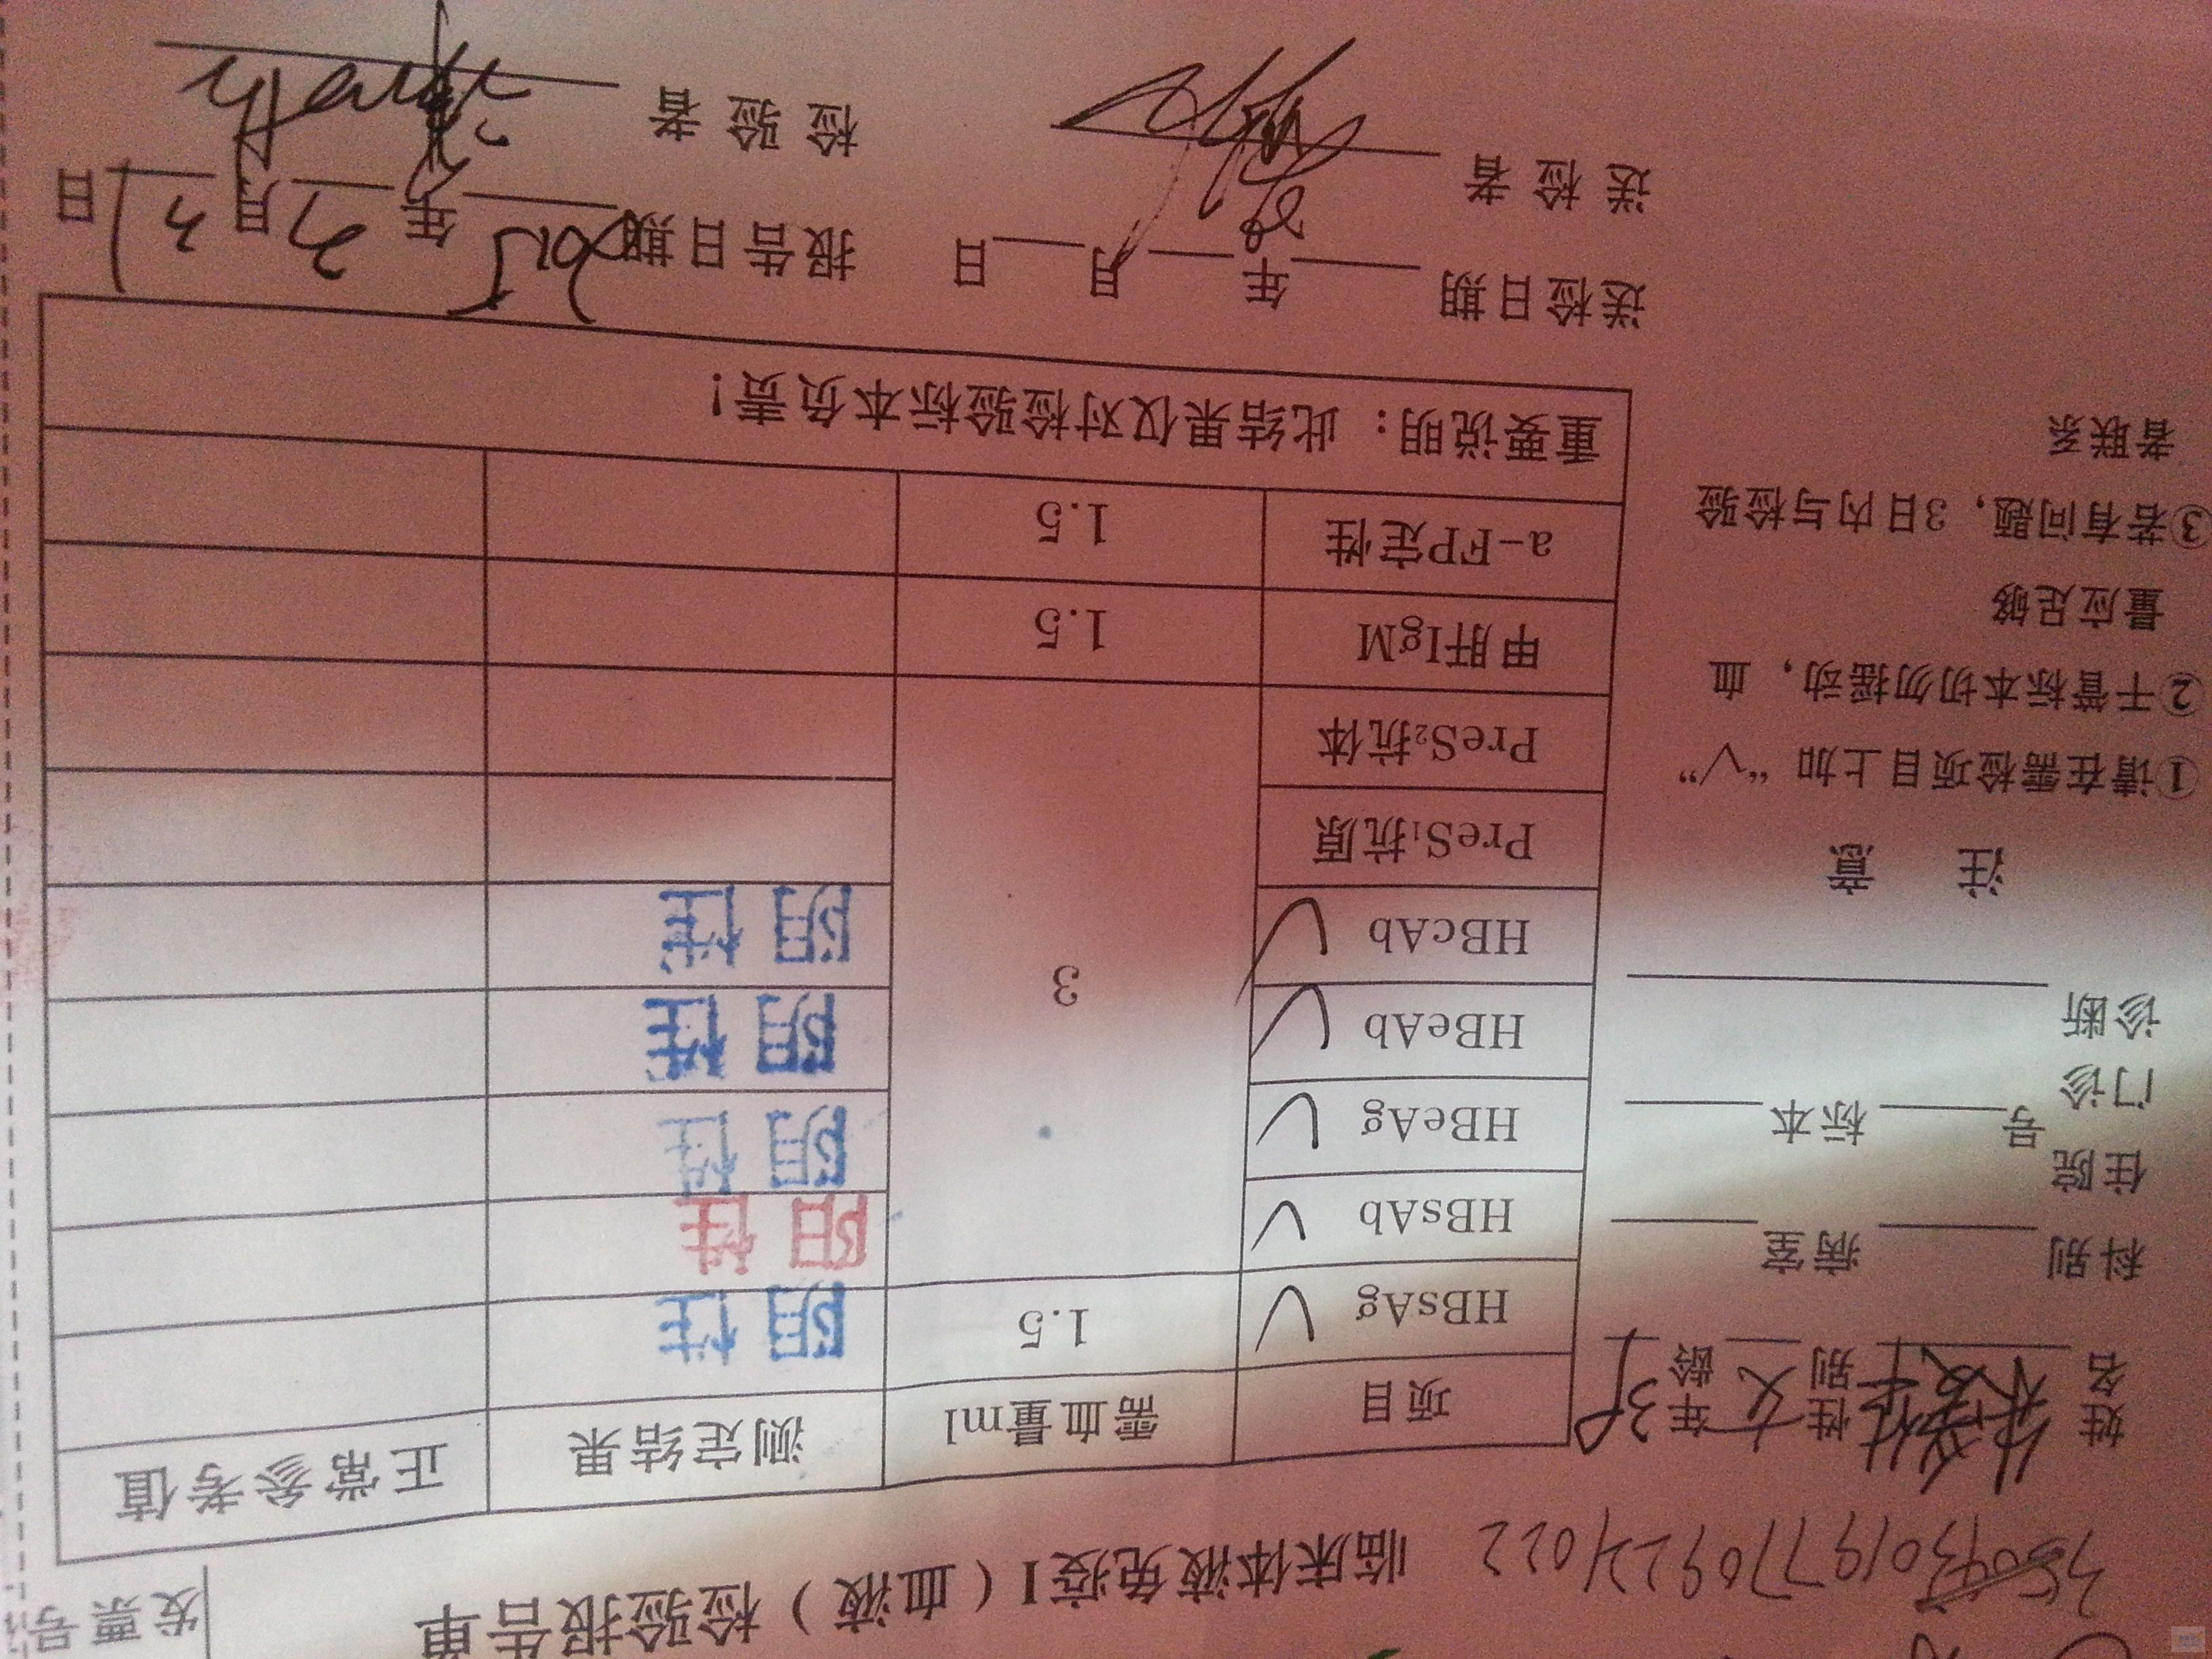 临床体液免疫I（血液）检验报告单
发票号
姓名 性别 女 年龄
科别 病室
住院
门诊 号 标本
诊断
注 意
①请在需检项目上加“√”
②干管标本切勿摇动，血
量应足够
③若有问题，3日内与检验
者联系
项目 需血量ml 测定结果 正常参考值
HBsAg √ 1.5 阴性
HBsAb √ 3 阳性
HBeAg √ 阴性
HBeAb √ 阴性
HBcAb √ 阴性
PreS₁抗原
PreS₂抗体
甲肝IgM 1.5
a-FP定性 1.5
重要说明：此结果仅对检验标本负责！
送检日期 年 月 日 报告日期 2015年 月 日
送检者 检验者